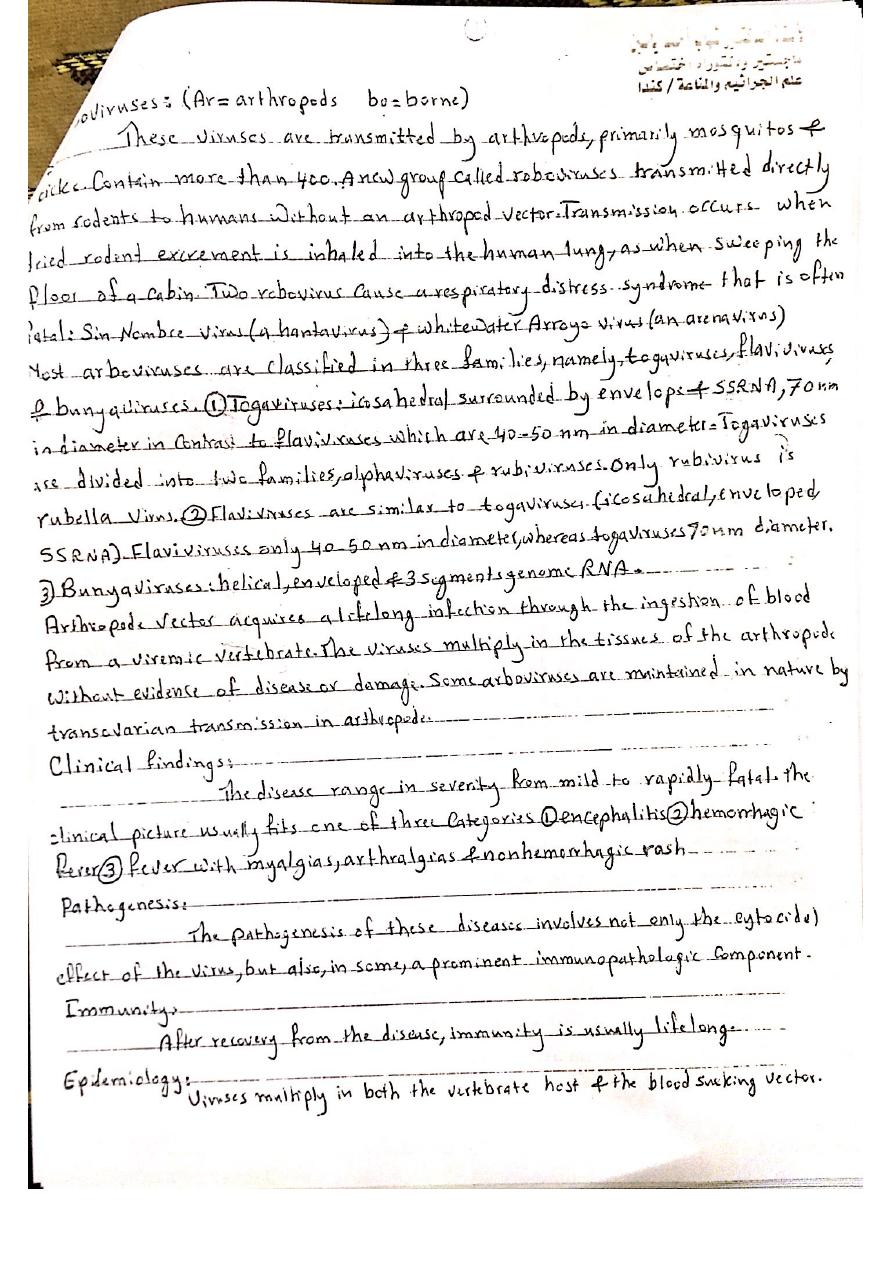 ماجستير ودكتوراه اختصاص
علم الجراثيم والمناعة / كندا
oviruses: (Ar= arthropods bo=borne)
These viruses are transmitted by arthropods, primarily mosquitos &
ticks. Contain more than 400. A new group called roboviruses transmitted directly
from rodents to humans without an arthropod vector. Transmission occurs when
dried rodent excrement is inhaled into the human lung, as when sweeping the
floor of a cabin. Two robovirus cause a respiratory distress syndrome that is often
fatal: Sin Nombre virus (a hantavirus) & Whitewater Arroyo virus (an arenavirus)
Most arboviruses are classified in three families, namely, togaviruses, flaviviruses,
& bunyaviruses. ① Togaviruses: icosahedral surrounded by envelope & SSRNA, 70 nm
in diameter in contrast to flaviviruses which are 40-50 nm in diameter. Togaviruses
are divided into two families, alphaviruses & rubiviruses. Only rubivirus is
rubella virus. ② Flaviviruses are similar to togaviruses (icosahedral, enveloped,
SSRNA). Flaviviruses only 40-50 nm in diameter, whereas togaviruses 70 nm diameter.
③ Bunyaviruses: helical, enveloped & 3 segments genome RNA.
Arthropode vector acquires a lifelong infection through the ingestion of blood
from a viremic vertebrate. The viruses multiply in the tissues of the arthropode
without evidence of disease or damage. Some arboviruses are maintained in nature by
transovarian transmission in arthropode.
Clinical findings:
The disease range in severity from mild to rapidly fatal. The
clinical picture usually fits one of three categories ① encephalitis ② hemorrhagic
fever ③ fever with myalgias, arthralgias & nonhemorrhagic rash
Pathogenesis:
The pathogenesis of these diseases involves not only the cytocidal
effect of the virus, but also, in some, a prominent immunopathologic component.
Immunity:
After recovery from the disease, immunity is usually lifelong.
Epidemiology:
Viruses multiply in both the vertebrate host & the blood sucking vector.